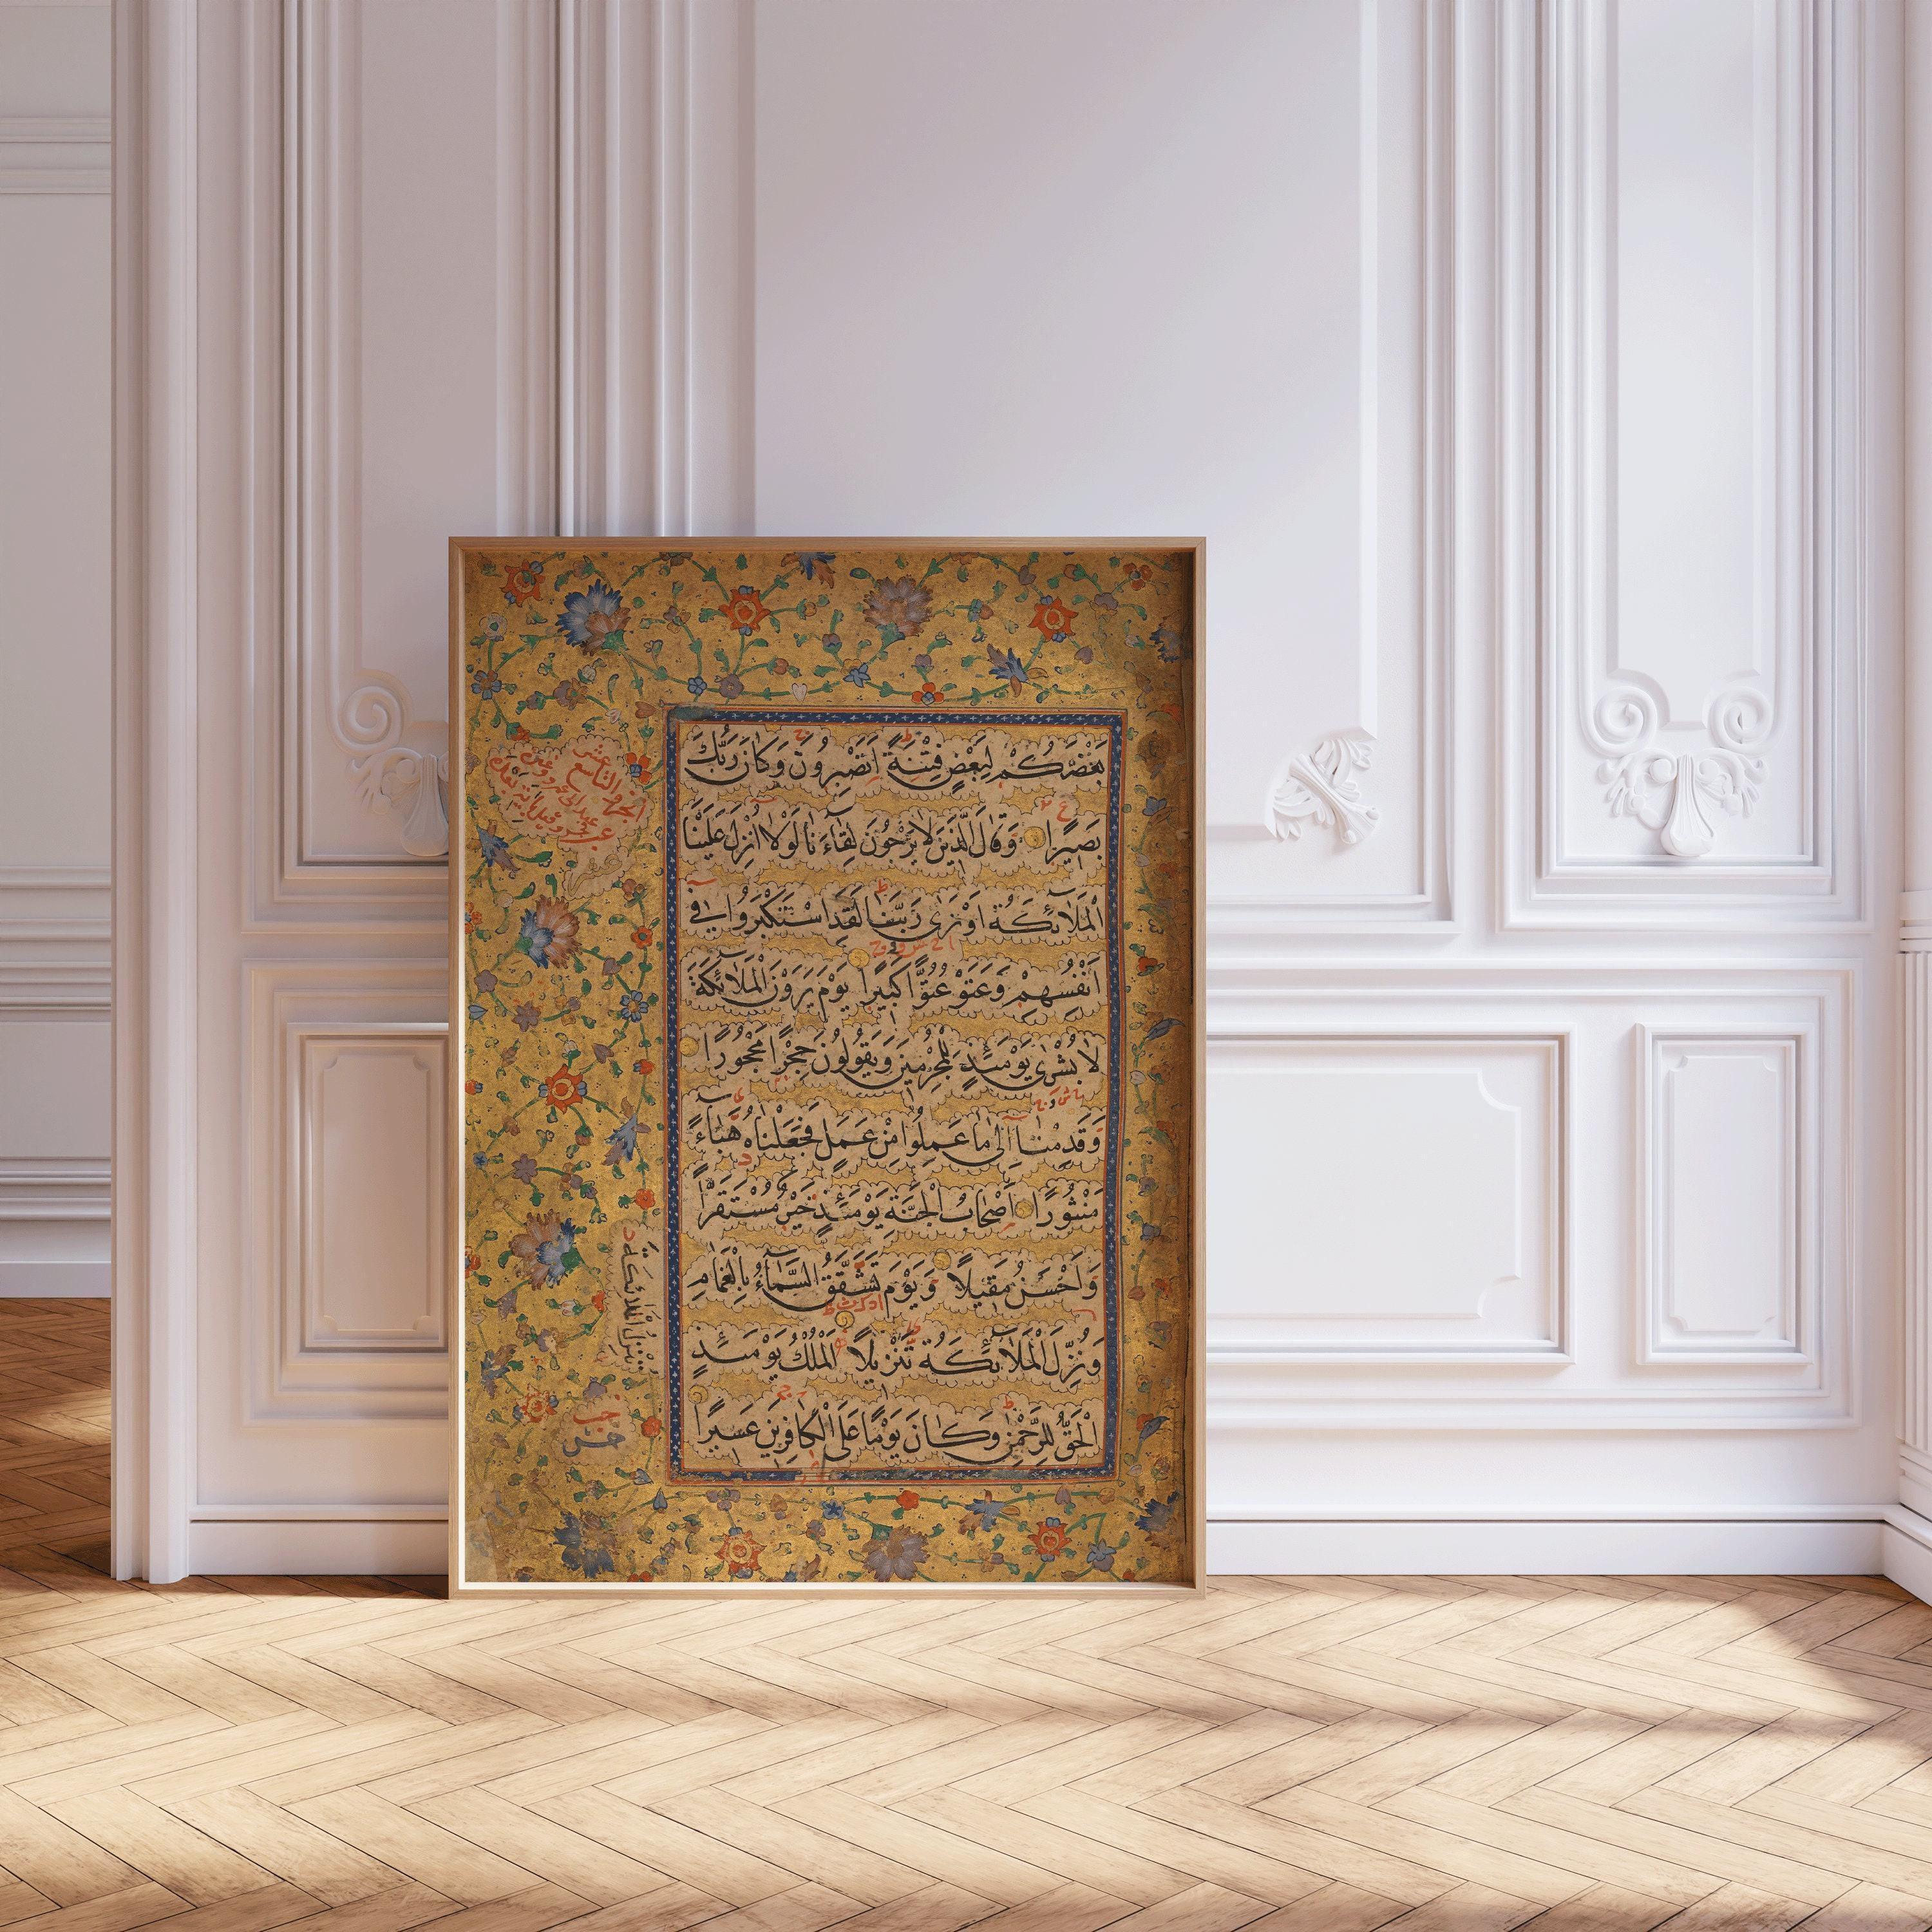 بَعْضَكُمْ لِبَعْضٍ فِتْنَةً اَتَصْبِرُونَ وَكَانَ رَبُّكَ
بَصِيرًا وَقَالَ الَّذِينَ لَا يَرْجُونَ لِقَاءَنَا لَوْلَا اُنْزِلَ عَلَيْنَا
الْمَلَائِكَةُ اَوْ نَرٰى رَبَّنَا لَقَدِ اسْتَكْبَرُوا فِى
اَنْفُسِهِمْ وَعَتَوْ عُتُوًّا كَبِيرًا يَوْمَ يَرَوْنَ الْمَلَائِكَةَ
لَا بُشْرٰى يَوْمَئِذٍ لِلْمُجْرِمِينَ وَيَقُولُونَ حِجْرًا مَحْجُورًا
وَقَدِمْنَا اِلٰى مَا عَمِلُوا مِنْ عَمَلٍ فَجَعَلْنَاهُ هَبَاءً
مَنْثُورًا اَصْحَابُ الْجَنَّةِ يَوْمَئِذٍ خَيْرٌ مُسْتَقَرًّا
وَاَحْسَنُ مَقِيلًا وَيَوْمَ تَشَقَّقُ السَّمَاءُ بِالْغَمَامِ
وَنُزِّلَ الْمَلَائِكَةُ تَنْزِيلًا اَلْمُلْكُ يَوْمَئِذٍ
الْحَقُّ لِلرَّحْمٰنِ وَكَانَ يَوْمًا عَلَى الْكَافِرِينَ عَسِيرًا
الجزء التاسع عشر
وَنُنْزِلُ الْمَلَائِكَةَ